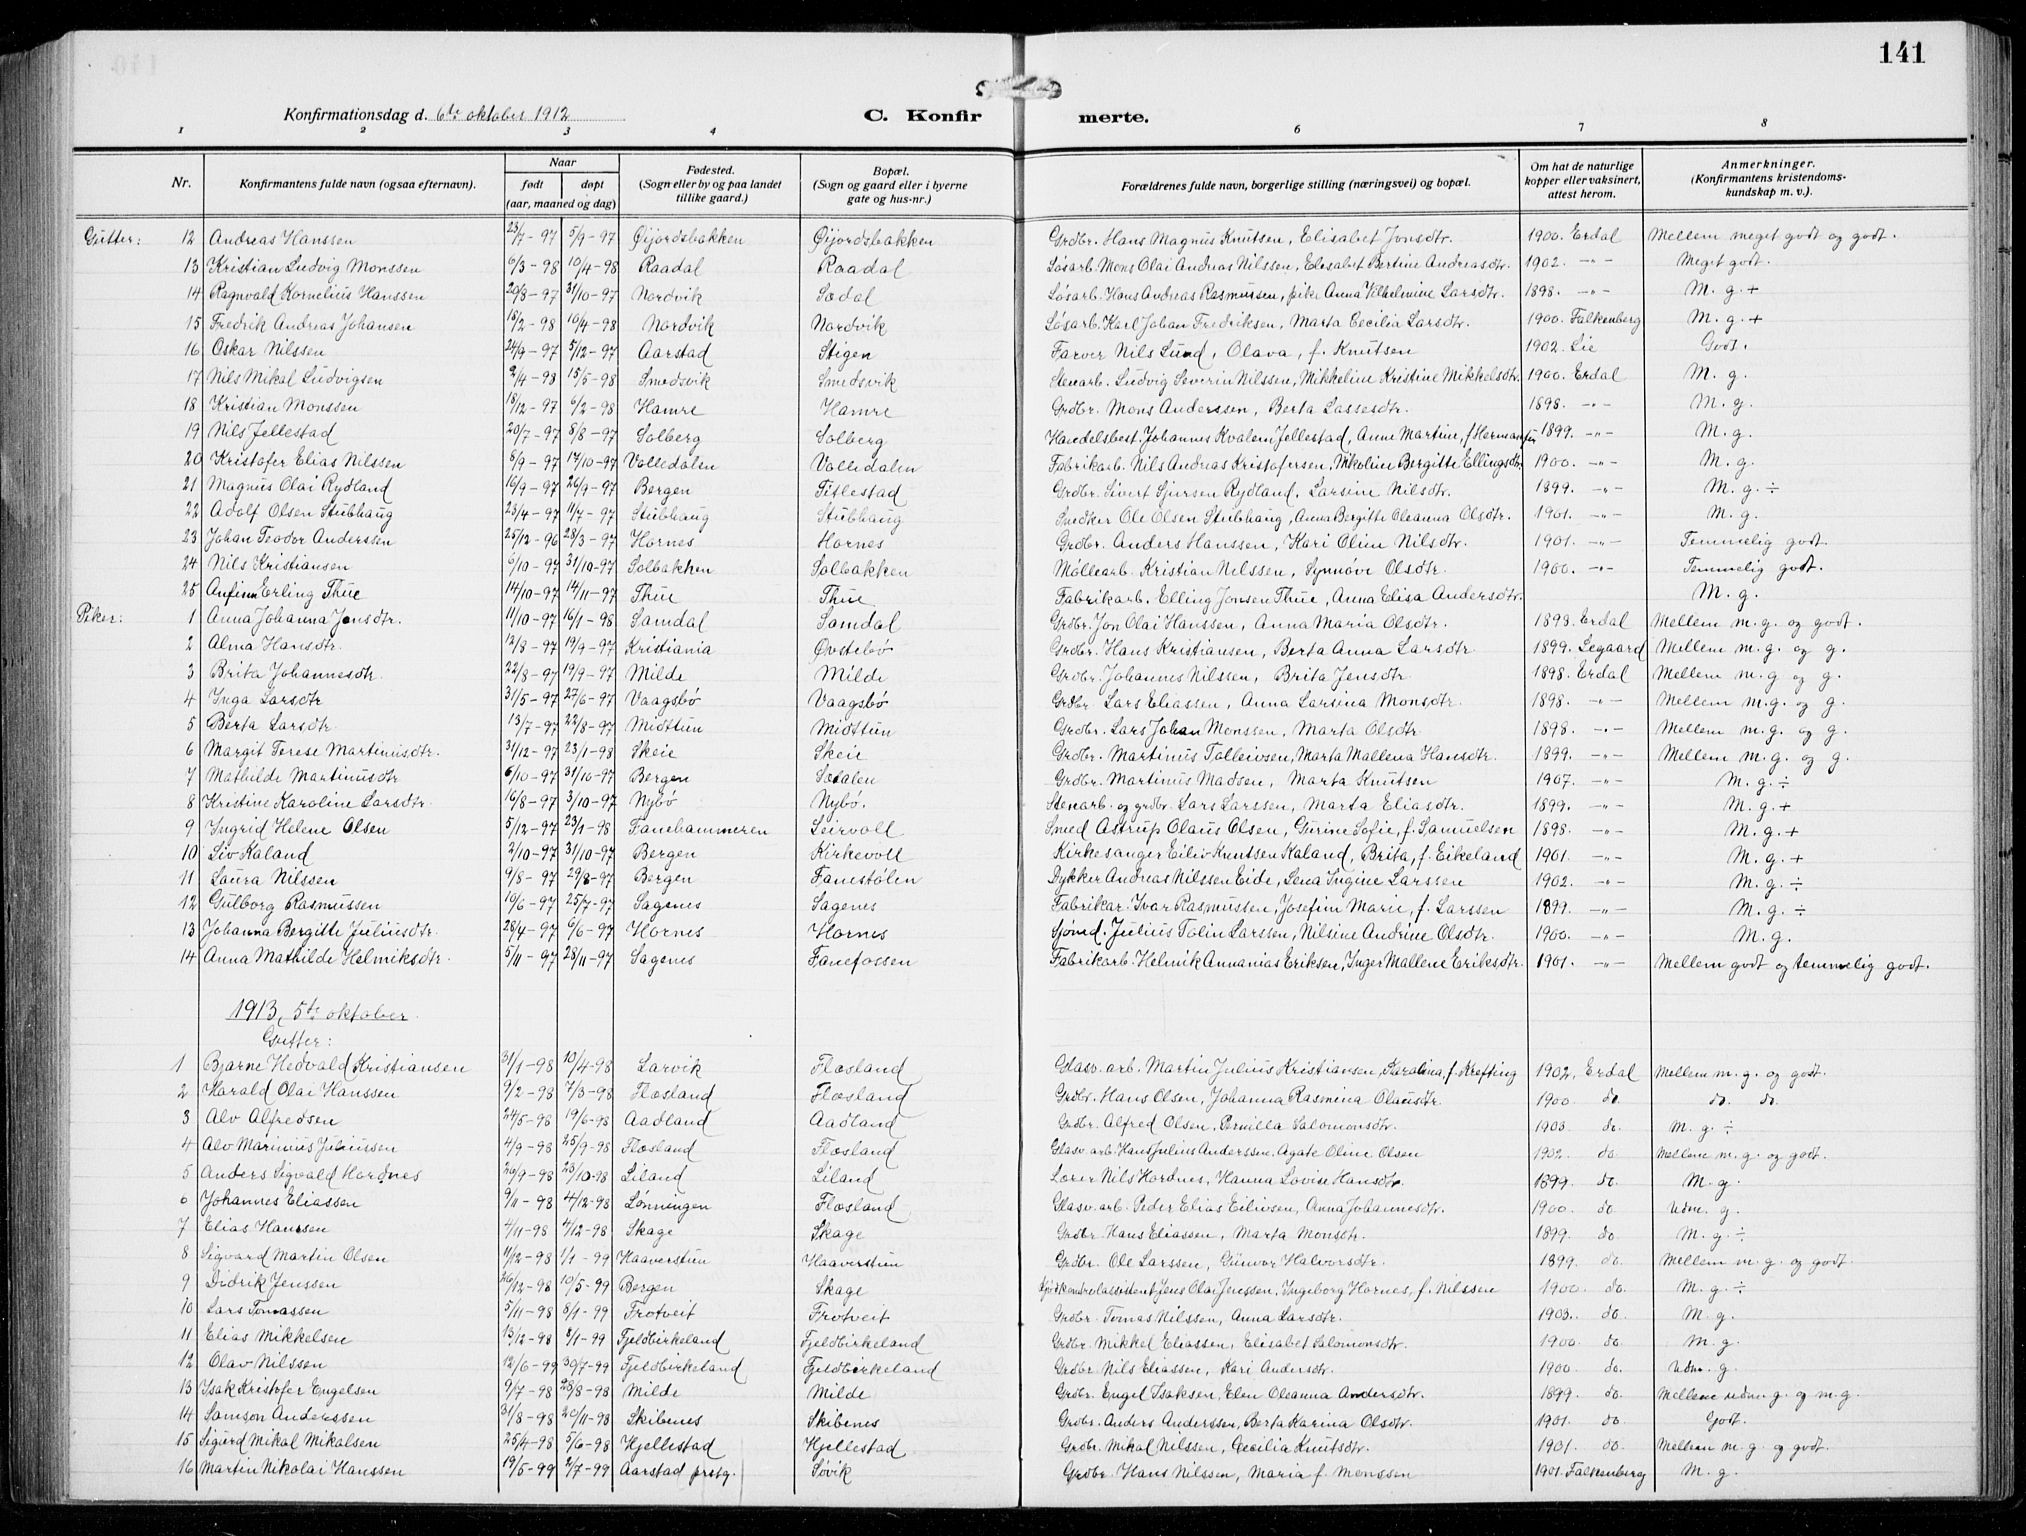 141
Konfirmationsdag d. 6te oktober 1912 C. Konfirmerte.
1 2 3 4 5 6 7 8
Nr. Konfirmantens fulde navn (ogsaa efternavn). Naar født døpt (aar, maaned og dag) Fødested. (Sogn eller by og paa landet tillike gaard.) Bopæl. (Sogn og gaard eller i byerne gate og hus-nr.) Forældrenes fulde navn, borgerlige stilling (næringsvei) og bopæl. Om hat de naturlige kopper eller vaksinert, attest herom. Anmerkninger. (Konfirmantens kristendoms-kundskap m. v.).
Gutter: 12 Andreas Hanssen 23/7-97 5/9-97 Øijordsbakken Øijordsbakken Grdbr. Hans Magnus Knutsen, Elisabet Jonsdtr. 1900. Erdal Mellem meget godt og godt.
13 Kristian Ludvig Monssen 6/3-98 10/4-98 Raadal Raadal Løsarb. Mons Olai Andreas Nilssen, Elesabet Bertine Andreasdtr. 1902. -"- Meget godt.
14 Ragnvald Kornelius Hanssen 20/8-97 31/10-97 Nordvik Sædal Løsarb. Hans Andreas Rasmussen, pike Anna Vilhelmine Larsdtr. 1898. -"- M. g. +
15 Fredrik Andreas Johansen 18/2-98 10/4-98 Nordvik Nordvik Løsarb. Karl Johan Fredriksen, Marta Cecilia Larsdtr. 1900. Falkenberg M. g. +
16 Oskar Nilssen 24/9-97 5/12-97 Aarstad Stigen Farver Nils Lund, Olava, f. Knutsen 1902. Lie Godt.
17 Nils Mikal Ludvigsen 2/4-98 15/5-98 Smedsvik Smedsvik Stenarb. Ludvig Severin Nilssen, Mikkeline Kristine Mikkelsdtr. 1900. Erdal M. g.
18 Kristian Monssen 18/12-97 6/2-98 Hamre Hamre Grdbr. Mons Anderssen, Berta Lassesdtr. 1898. -"- M. g.
19 Nils Jellestad 20/7-97 8/8-97 Solberg Solberg Handelsbest. Johannes Kvalem Jellestad, Anne Martine, f. Hermansen 1899. -"- M. g.
20 Kristofer Elias Nilssen 6/9-97 17/10-97 Volledalen Volledalen Fabrikarb. Nils Andreas Kristofersen, Nikoline Bergitte Ellingsdtr. 1900. -"- M. g.
21 Magnus Olai Rydland 16/9-97 26/9-97 Bergen Titlestad Grdbr. Sivert Sjursen Rydland, Larsine Nilsdtr. 1899. -"- M. g. ÷
22 Adolf Olsen Stubhaug 23/4-97 11/7-97 Stubhaug Stubhaug Snedker Ole Olsen Stubhaug, Anna Bergitte Oleanna Olsdtr. 1901. -"- M. g.
23 Johan Teodor Anderssen 25/12-96 28/3-97 Hornes Hornes Grdbr. Anders Hanssen, Kari Oline Nilsdtr. 1901. -"- Temmelig godt.
24 Nils Kristiansen 6/10-97 31/10-97 Solbakken Solbakken Møllearb. Kristian Nilssen, Synnøve Olsdtr. 1900. -"- Temmelig godt.
25 Anfinn Erling Thue 14/10-97 14/11-97 Thue Thue Fabrikarb. Elling Jonsen Thue, Anna Elisa Andersdtr. M. g.
Piker: 1 Anna Johanna Jonsdtr. 11/10-97 16/1-98 Samdal Samdal Grdbr. Jon Olai Hanssen, Anna Maria Olsdtr. 1898. Erdal Mellem m. g. og godt.
2 Alma Hansdtr. 12/8-97 19/9-97 Kristiania Øvstebø Grdbr. Hans Kristiansen, Berta Anna Larsdtr. 1899. Legaard Mellem m. g. og g.
3 Brita Johannesdtr. 22/8-97 19/9-97 Milde Milde Grdbr. Johannes Nilssen, Brita Jensdtr 1898. Erdal Mellem m. g. og g.
4 Inga Larsdtr 31/5-97 27/6-97 Vaagsbø Vaagsbø Grdbr Lars Eliassen, Anna Larsina Monsdtr. 1898. -"- Mellem m. g. og g.
5 Berta Larsdtr. 13/7-97 22/8-97 Midttun Midttun Grdbr. Lars Johan Monssen, Marta Olsdtr 1898. -"- Mellem m. g. og g.
6 Margit Terese Martinusdtr. 31/12-97 23/1-98 Skeie Skeie Grdbr. Martinus Tolleivsen, Marta Mallena Hansdtr. 1899. -"- Mellem m. g. og g.
7 Mathilde Martinusdtr 6/10-97 31/10-97 Bergen Sædalen Grdbr. Martinus Madsen, Marta Knutsen 1907. -"- M. g. ÷
8 Kristine Karoline Larsdtr. 16/8-97 3/10-97 Nybø Nybø. Stenarb. og grdbr. Lars Larssen, Marta Eliasdtr. 1899. -"- M. g. +
9 Ingrid Helene Olsen 5/12-97 23/1-98 Fanehammeren Leirvoll Smed Astrup Olaus Olsen, Gurine Sofie, f. Samuelsen 1898. -"- M. g. +
10 Liv Kaland 2/10-97 31/10-97 Bergen Kirkevoll Kirkesanger Eiliv Knutsen Kaland, Brita, f. Eikeland 1901. -"- M. g. +
11 Laura Nilssen 9/8-97 29/8-97 Bergen Fanestølen Dykker Andreas Nilssen Eide, Lena Ingine Larssen 1902. -"- M. g. ÷
12 Gulborg Rasmussen 19/6-97 25/7-97 Sagenes Sagenes Fabrikar. Ivar Rasmussen, Josefine Marie, f. Larssen 1899. -"- M. g. ÷
13 Johanna Bergitte Juliusdtr. 28/4-97 6/6-97 Hornes Hornes Sjømd. Julius Tolin Larssen, Nilsine Andrine Olsdtr. 1900. -"- M. g.
14 Anna Mathilde Helmiksdtr. 5/11-97 28/11-97 Sagenes Fanefossen Fabrikarb. Helmik Annanias Eriksen, Inger Mallene Eriksdtr. 1901. -"- Mellem godt og temmelig godt.
1913, 5te oktober.
Gutter:
1 Bjarne Hedvald Kristiansen 31/1-98 10/4-98 Larvik Flæsland Glasv. arb. Martin Julius Kristiansen, Karolina, f. Krefting 1902. Erdal Mellem m. g. og godt.
2 Harald Olai Hanssen 9/2-98 7/3-98 Flæsland Flæsland Grdbr. Hans Olsen, Johanna Rasmina Olausdtr. 1900 do do. do.
3 Alv Alfredsen 24/5-98 19/6-98 Aadland Aadland Grdbr. Alfred Olsen, Pernilla Salomonsdtr. 1903. do. M. g. ÷
4 Alv Marinius Juliussen 4/9-98 25/9-98 Flæsland Flæsland Glasv. arb. Hans Julius Anderssen, Agate Oline Olsen 1902. do Mellem m. g. og godt.
5 Anders Sigvald Hordnes 26/9-98 23/10-98 Liland Liland Lærer Nils Hordnes, Hanna Lovise Hansdtr. 1899 do. M. g.
6 Johannes Eliassen 9/11-98 4/12-98 Lønningen Flæsland Glasv. arb. Peder Elias Eilivsen, Anna Johannesdtr. 1900. do Udm. g.
7 Elias Hanssen 4/11-98 4/12-98 Skage Skage Grdbr. Hans Eliassen, Marta Monsdtr. 1899. do M. g. ÷
8 Sigvard Martin Olsen 11/12-98 1/1-99 Haaverstun Haaverstun Grdbr. Ole Larssen, Gunvor Halvorsdtr. 1899. do. Mellem m. g. og godt.
9 Didrik Jenssen 26/12-98 10/5-99 Bergen Skage Kjødkontrolassistent Jens Olai Jenssen, Ingeborg Hornes, f. Nilssen 1900. do. M. g. ÷
10 Lars Tomassen 5/11-98 8/1-99 Trotveit Trotveit Grdbr. Tomas Nilssen, Anna Larsdtr. 1903. do. M. g.
11 Elias Mikkelsen 13/12-98 8/1-99 Fjeldbirkeland Fjeldbirkeland Grdbr. Mikkel Eliassen, Elisabet Salomonsdtr. 1900. do. M. g.
12 Olav Nilssen 12/6-99 30/7-99 Fjeldbirkeland Fjeldbirkeland Grdbr Nils Eliassen, Kari Andersdtr. 1900 do. Udm. g.
13 Isak Kristofer Engelsen 9/7-98 28/8-98 Milde Milde Grdbr. Engel Isaksen, Elen Oleanna Andersdtr. 1899. do Mellem udm. g. og m. g.
14 Samson Anderssen 31/8-98 20/11-98 Skibenes Skibenes Grdbr. Anders Anderssen, Berta Karina Olsdtr. 1901. do Godt.
15 Sigurd Mikal Mikalsen 25/4-98 5/6-98 Hjellestad Hjellestad Grdbr. Mikal Nilssen, Cecilia Knutsdtr. 1901. do. Mellem m. g. og godt.
16 Martin Nikolai Hanssen 19/5-99 2/7-99 Aarstad prstg. Søvik Grdbr. Hans Nilssen, Maria f. Monssen 1901. Falkenberg M. g.